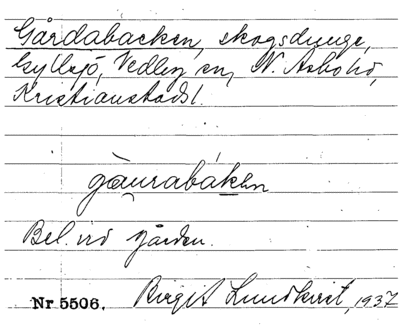 Gårdabacken, skogsdunge,
Gyllsjö, Vedby sn, N. Åsbo hd,
Kristianstads l.
gàurabákən
Bel. vid gården.
Nr 5506. Birgit Lundkvist, 1937